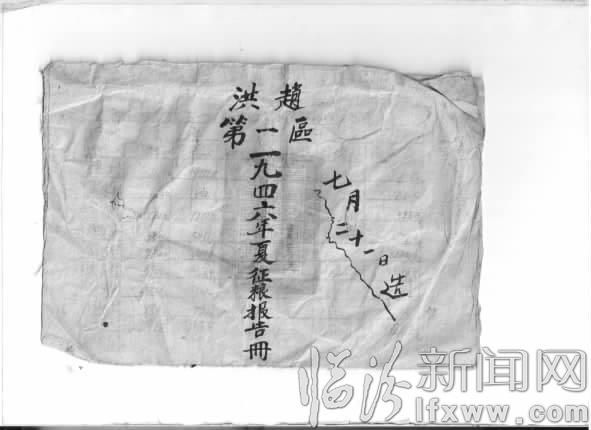 洪趙
第一區
一九四六年夏征粮报告冊
七月二十一日造
临汾新闻网
lfxww.com